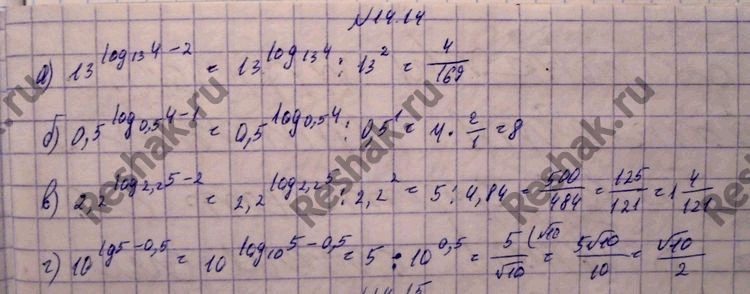 №14.14
а) 13^{log_{13}4-2} = 13^{log_{13}4} : 13^2 = \frac{4}{169}
б) 0,5^{log_{0,5}4-1} = 0,5^{log_{0,5}4} : 0,5^1 = 4 \cdot \frac{2}{1} = 8
в) 2,2^{log_{2,2}5-2} = 2,2^{log_{2,2}5} : 2,2^2 = 5 : 4,84 = \frac{500}{484} = \frac{125}{121} = 1\frac{4}{121}
г) 10^{lg5-0,5} = 10^{log_{10}5-0,5} = 5 : 10^{0,5} = \frac{5}{\sqrt{10}}^{(\sqrt{10}} = \frac{5\sqrt{10}}{10} = \frac{\sqrt{10}}{2}
Reshak.ru
Reshak.ru
Reshak.ru